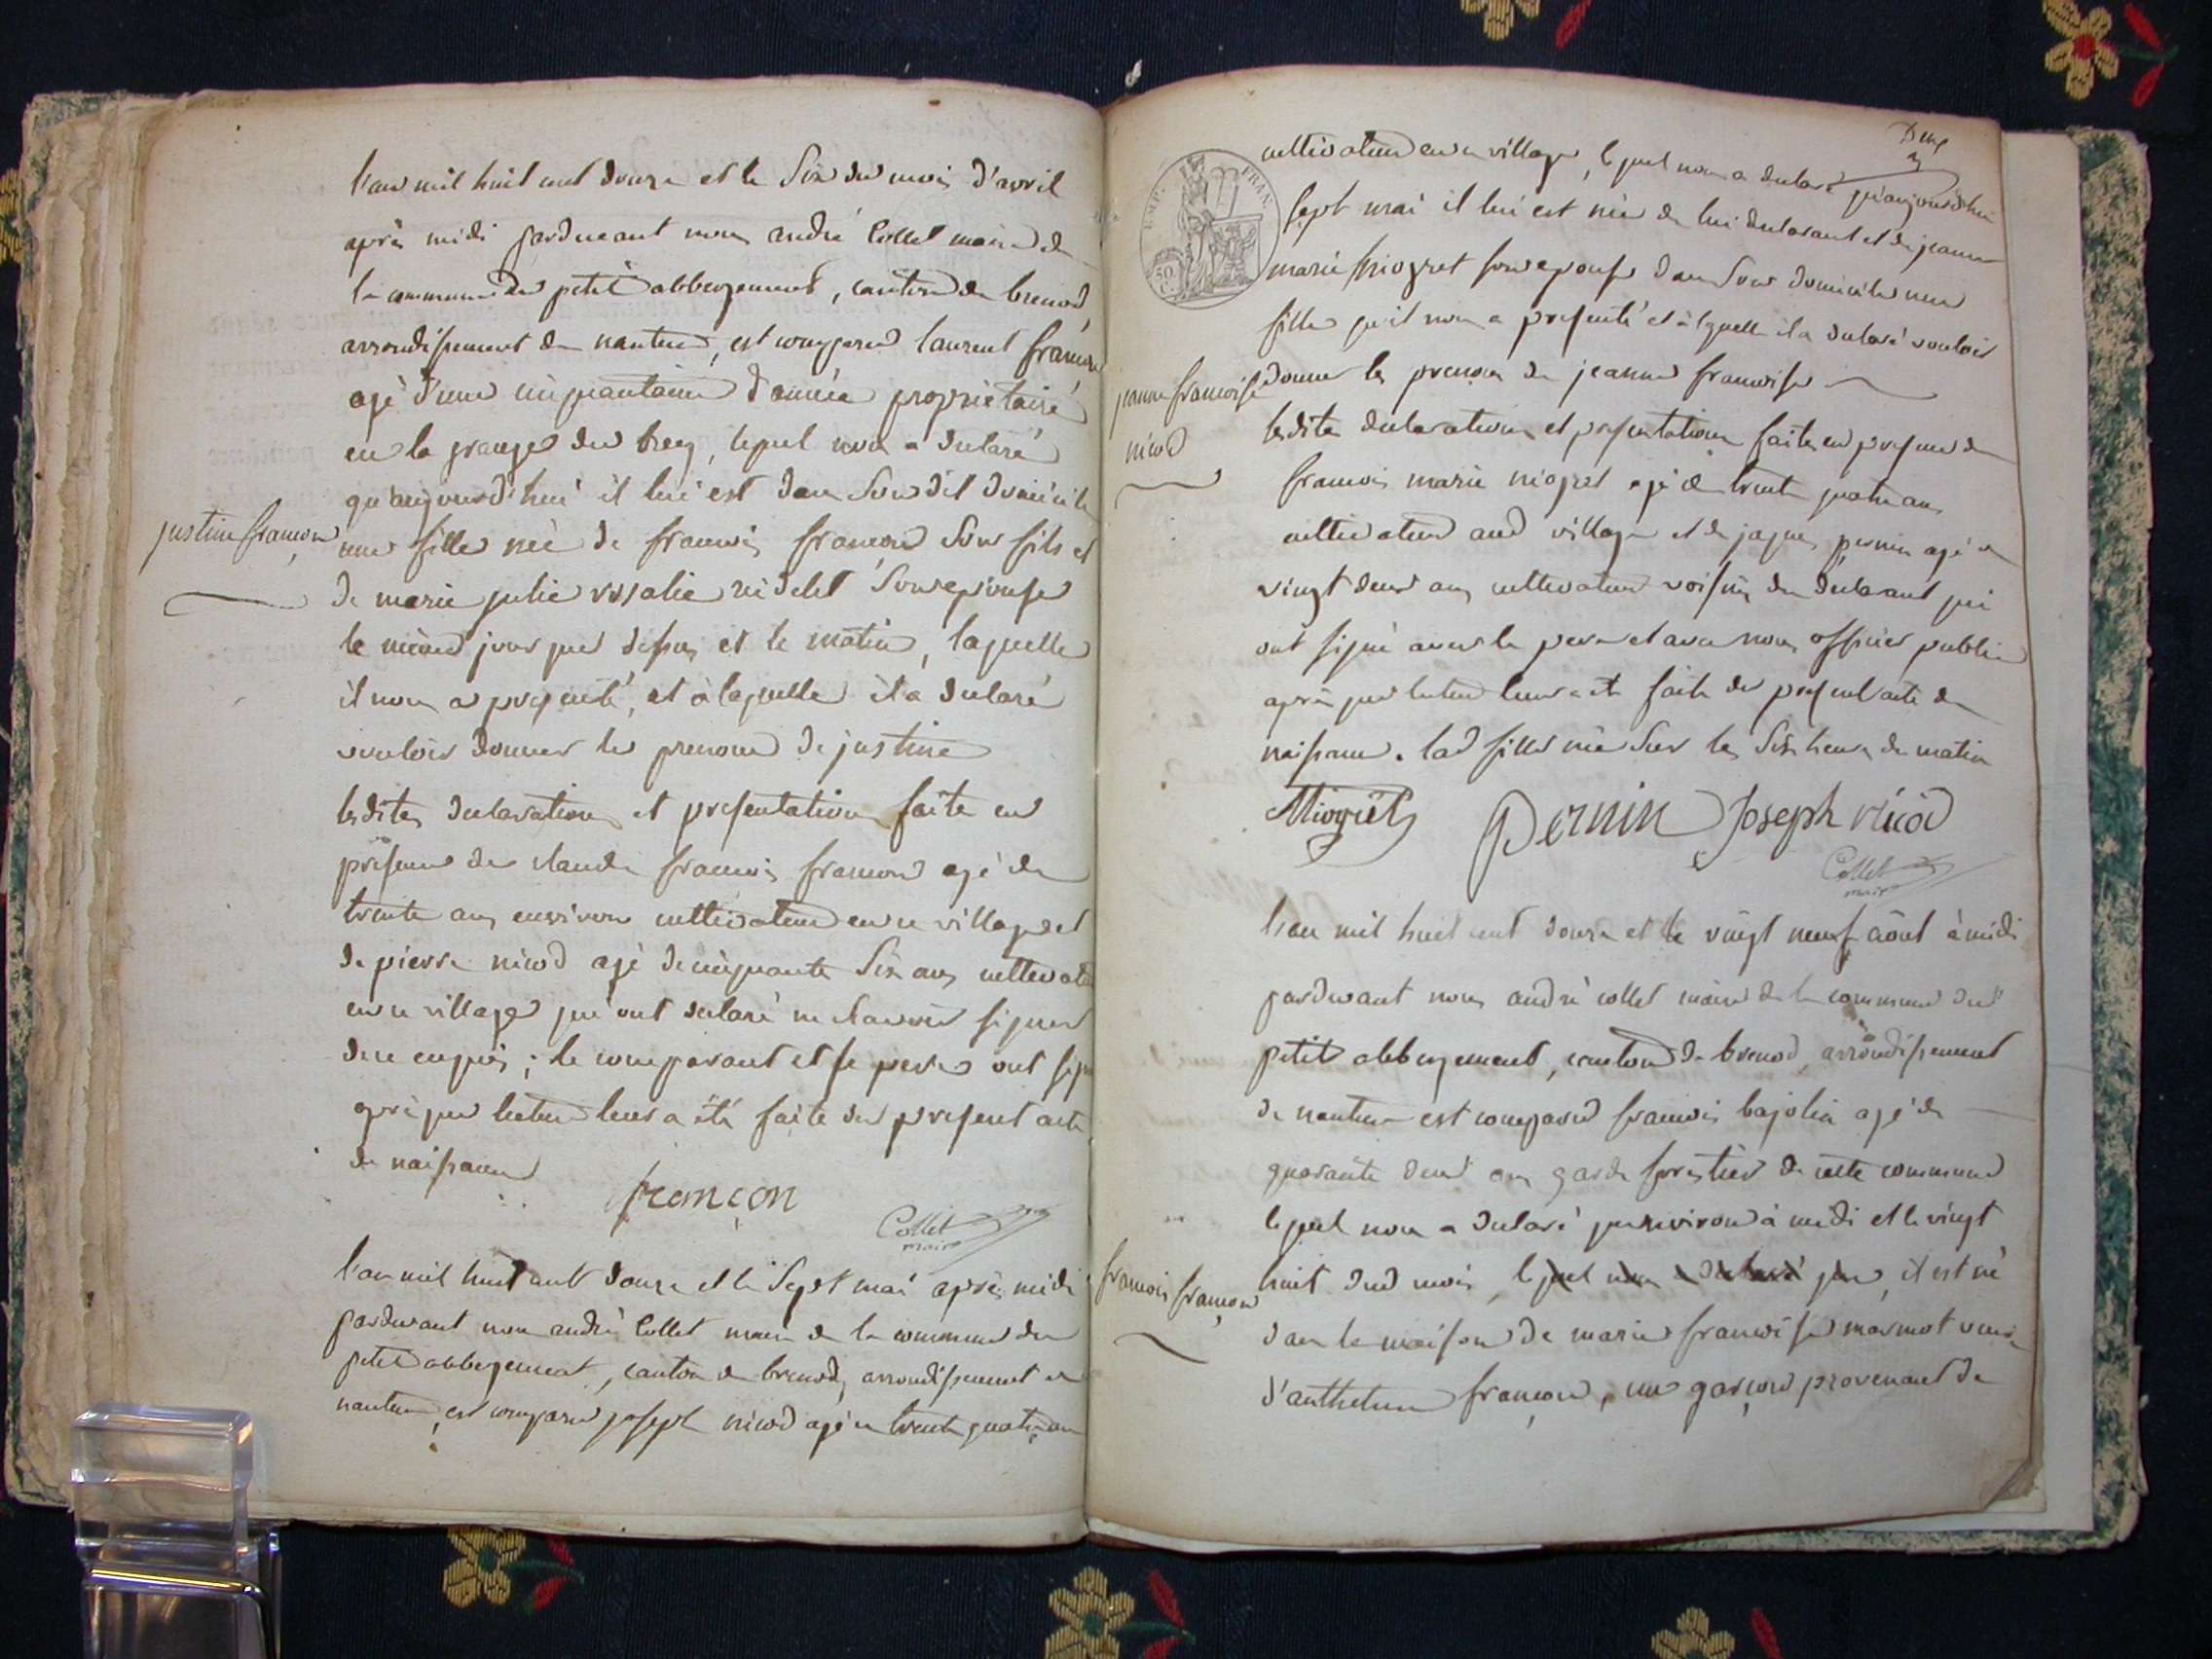 l'an mil huit cent douze et le six du mois d'avril
après midi pardevant nous andré Collet maire de
la commune du petit abbergement, canton de brenod,
arrondissement de nantua, est comparu laurent françon
agé d'une cinquantaine d'année propriétaire
en la grange du
lequel nous a declaré
qu'aujourd'hui il lui est dans son dit domicile
justine françon
une fille née de francois françon son fils et
de marie julie rosalie
son epouse
le même jour que dessus et le matin, laquelle
il nous a presenté, et à laquelle il a declaré
vouloir donner le prenom de justine
lesdites declaration et presentation faite en
presence de claude francois françon agé de
trente ans environ cultivateur en ce village et
de pierre nicod agé de cinquante six ans cultivateur
en ce village qui ont declaré ne scavoir signer
de ce enquis ; le comparant et le pere ont signé
après que lecture leur a été faite du present acte
de naissance
françon
Collet
maire
l'an mil huit cent douze et le sept mai après midi
pardevant nous andré Collet maire de la commune du
petit abbergement, canton de brenod, arrondissement de
nantua, est comparu joseph nicod agé de trente quatre ans
cultivateur en ce village, lequel nous a declaré qu'aujourd'hui
sept mai il lui est née de lui declarant et de jeanne
EMP. FRAN.
50 C.
marie miogret son epouse dans son domicile une
fille qu'il nous a presenté et à laquelle il a declaré vouloir
jeanne francoise
nicod
donner les prenoms de jeanne francoise
lesdites declaration et presentation faite en presence de
francois marie miogret agé de trente quatre ans
cultivateur aud village et de jaques pernin agé de
vingt deux ans cultivateur voisin du declarant qui
ont signé avec le pere et avec nous officier public
après que lecture leur a été faite du present acte de
naissance. lad fille née sur les six heures du matin
Miogret Pernin Joseph nicod
Collet
maire
l'an mil huit cent douze et le vingt neuf août à midi
pardevant nous andré collet maire de la commune du
petit abbergement, canton de brenod, arrondissement
de nantua est comparu francois bajolin agé de
quarante deux ans garde forestier de cette commune
lequel nous a declaré qu'environ à midi et le vingt
francois françon
huit dud mois, lequel nous a declaré que, il est né
dans la maison de marie francoise marmot veuve
d'anthelme françon, un garçon provenant de